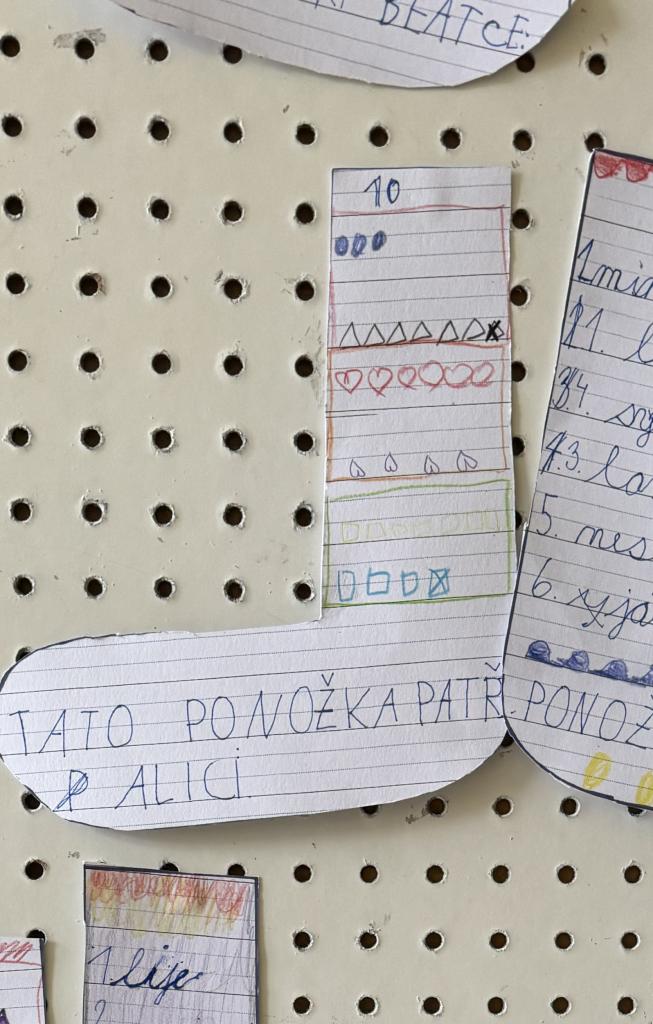 BEATCE.
10
TATO PONOŽKA PATŘ
ALICI
1 min
11. l
34. sn
13. la
5. nes
6. vyja
PONOŽ
1 lije
2